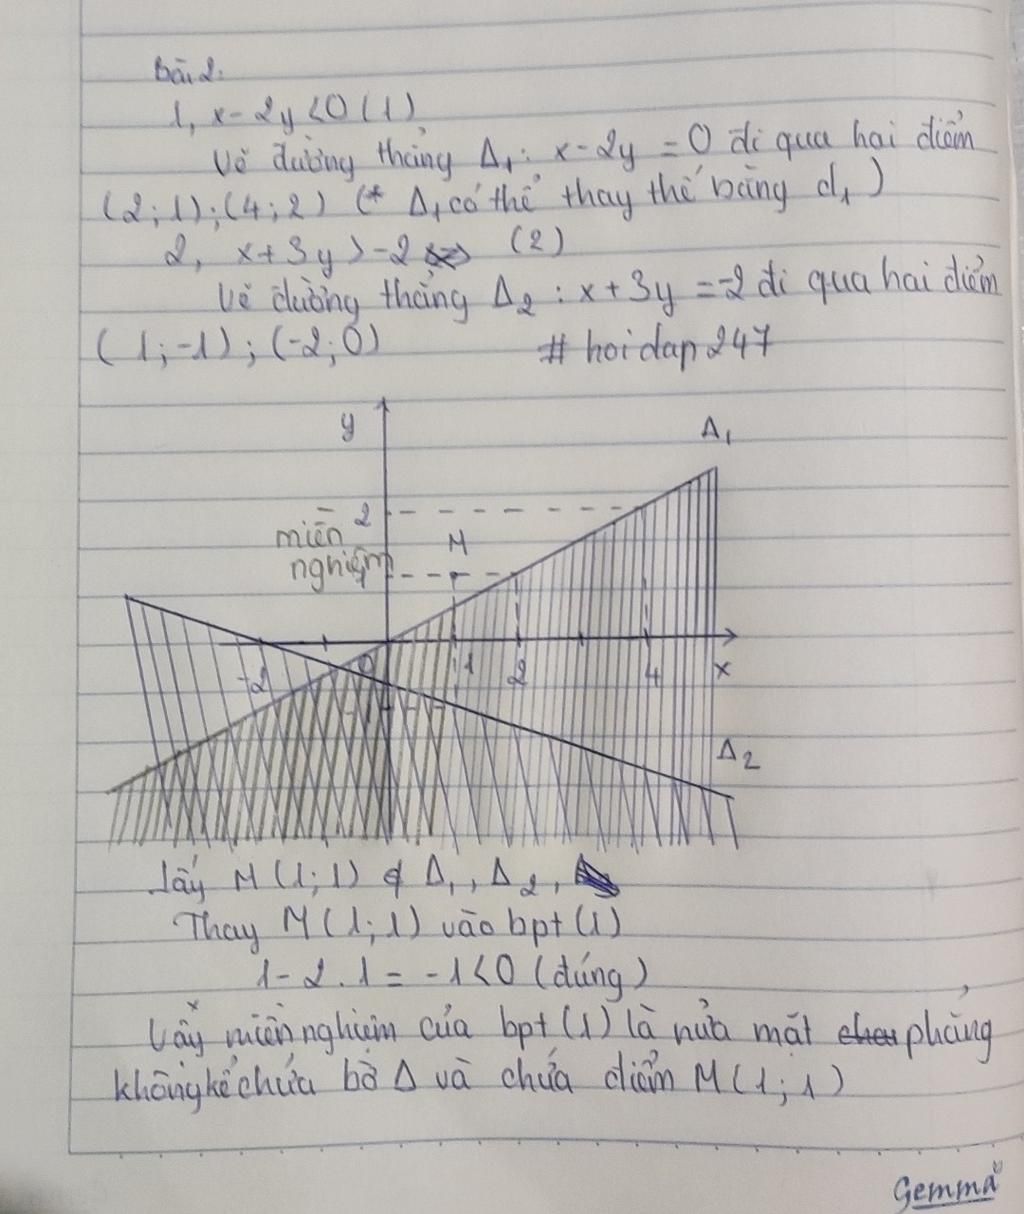 Bài 2:
1, x - 2y < 0 (1)
Vẽ đường thẳng Δ₁: x - 2y = 0 đi qua hai điểm
(2; 1); (4; 2) (* Δ₁ có thể thay thế bằng d₁)
2, x + 3y > -2 (2)
Vẽ đường thẳng Δ₂ : x + 3y = -2 đi qua hai điểm
(1; -1); (-2; 0) # hoidap247
y
Δ₁
2
miền
M
nghiệm
-2
O
1
2
4
x
-1
Δ₂
Lấy M (1; 1) ∉ Δ₁, Δ₂,
Thay M (1; 1) vào bpt (1)
1 - 2 . 1 = -1 < 0 (đúng)
Vậy miền nghiệm của bpt (1) là nửa mặt phẳng
không kể chứa bờ Δ và chứa điểm M (1; 1)
Gemma